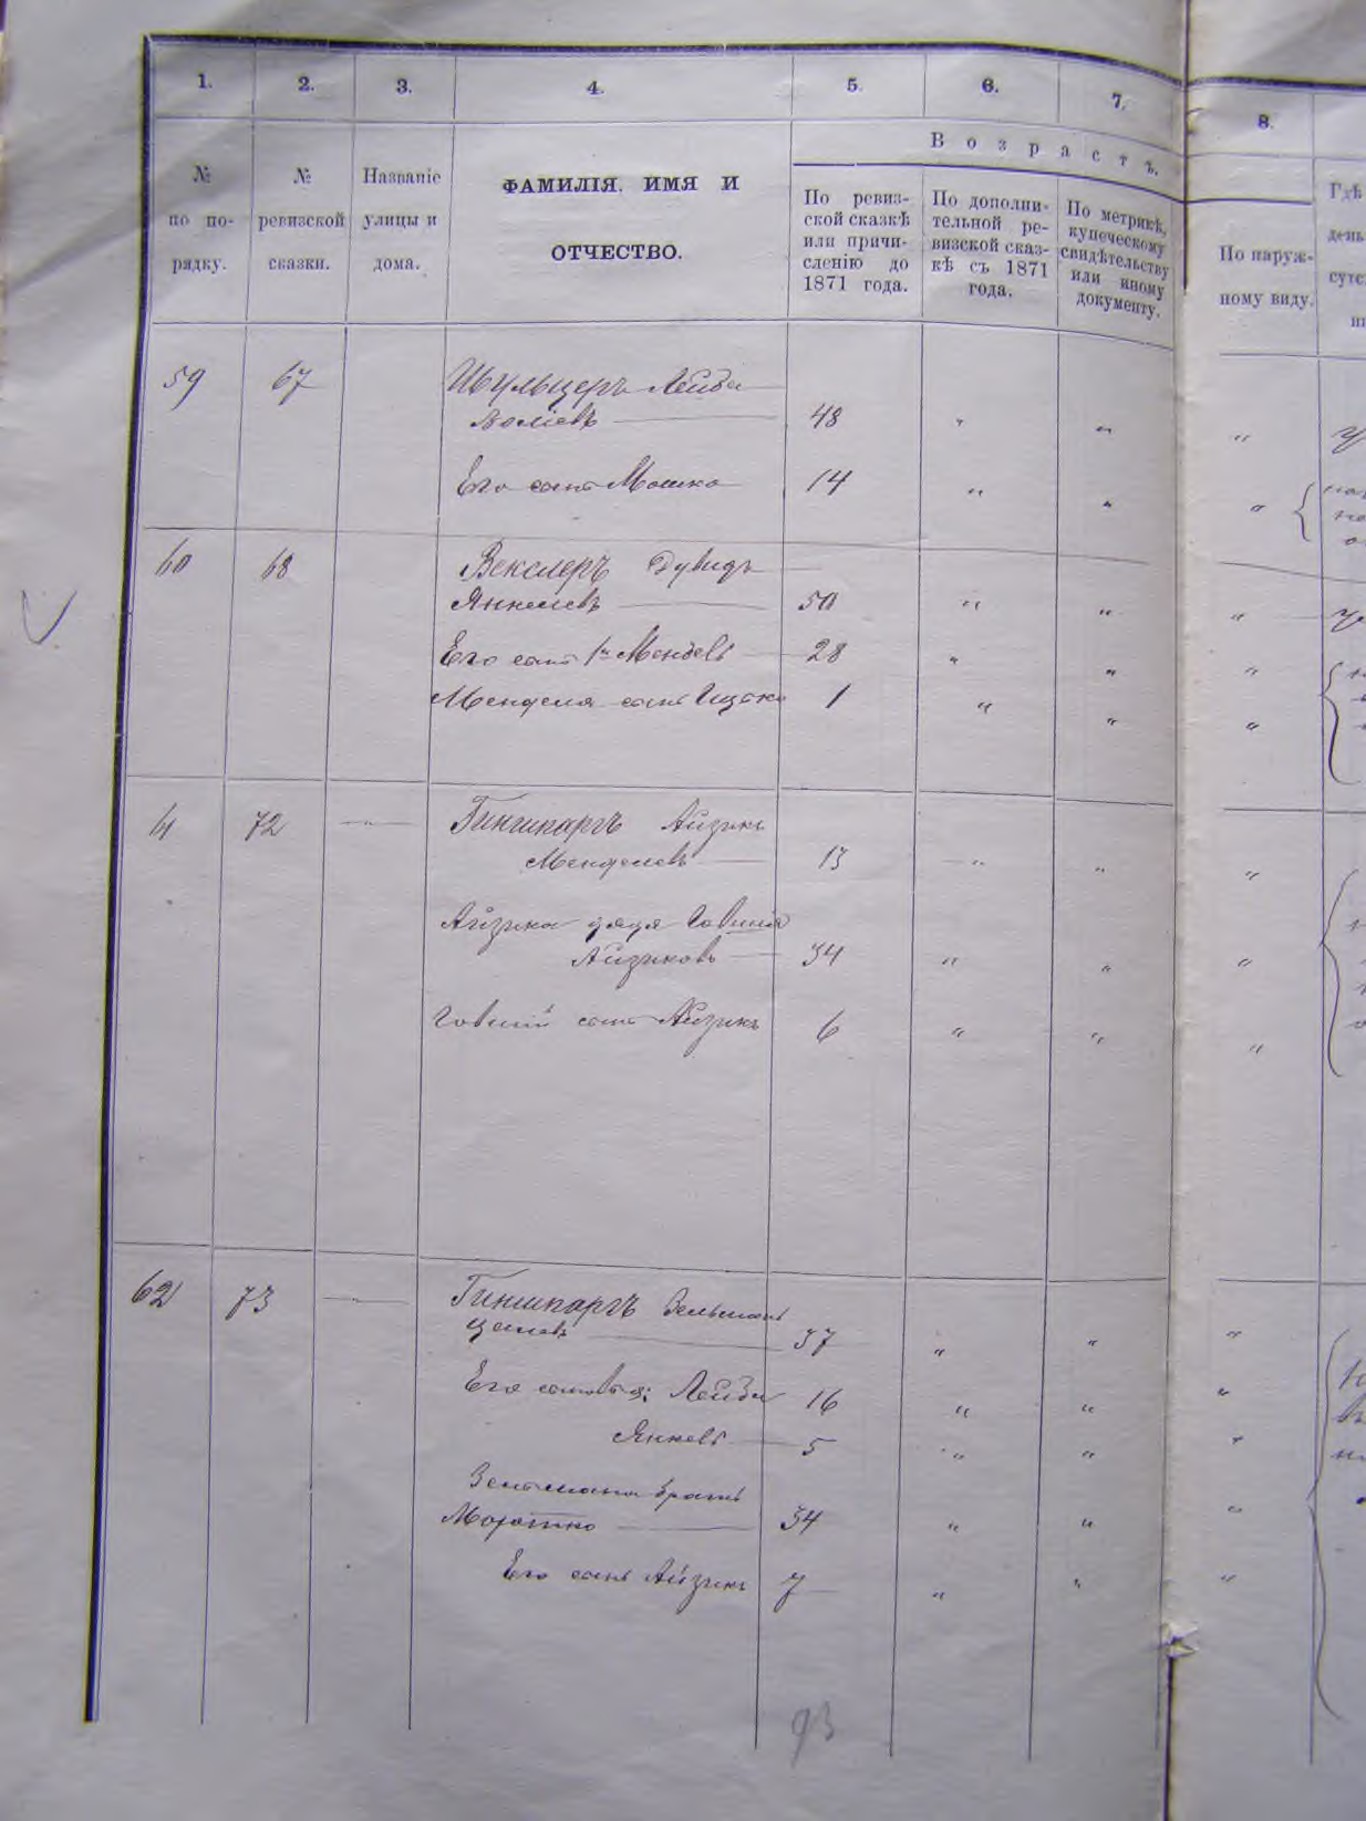 1. 2. 3. 4. 5. 6. 7. 8.
Возрастъ.
№ по по-рядку.
№ ревизской сказки.
Названіе улицы и дома.
ФАМИЛІЯ. ИМЯ И
ОТЧЕСТВО.
По ревиз-
ской сказкѣ
или причи-
сленію до
1871 года.
По дополни-
тельной ре-
визской сказ-
кѣ съ 1871
года.
По метрикѣ,
купеческому
свидѣтельству
или иному
документу.
По наруж-
ному виду.
Гдѣ
день
59 67 Шульцеръ Лейба
48 " " "
Его сынъ Мошко 14 " " "
60 68 Векслеръ Дувидъ
Янкелевъ 50 " " "
Его сынъ 1й Мендель 28 " " "
Менделя сынъ Ицско 1 " " "
61 72 Гиншпаргъ Айзикъ
Менделевъ 13 " " "
Айзика дядя Говшія
Айзиковъ 34 " " "
Говшій сынъ Айзикъ 6 " " "
62 73 Гиншпаргъ Зельманъ
37 " " "
Его сыновья: Лейба 16 " " "
Янкель 5 " " "
Зельмана братъ
Мортко 34 " " "
Его сынъ Айзикъ 7 " " "
93